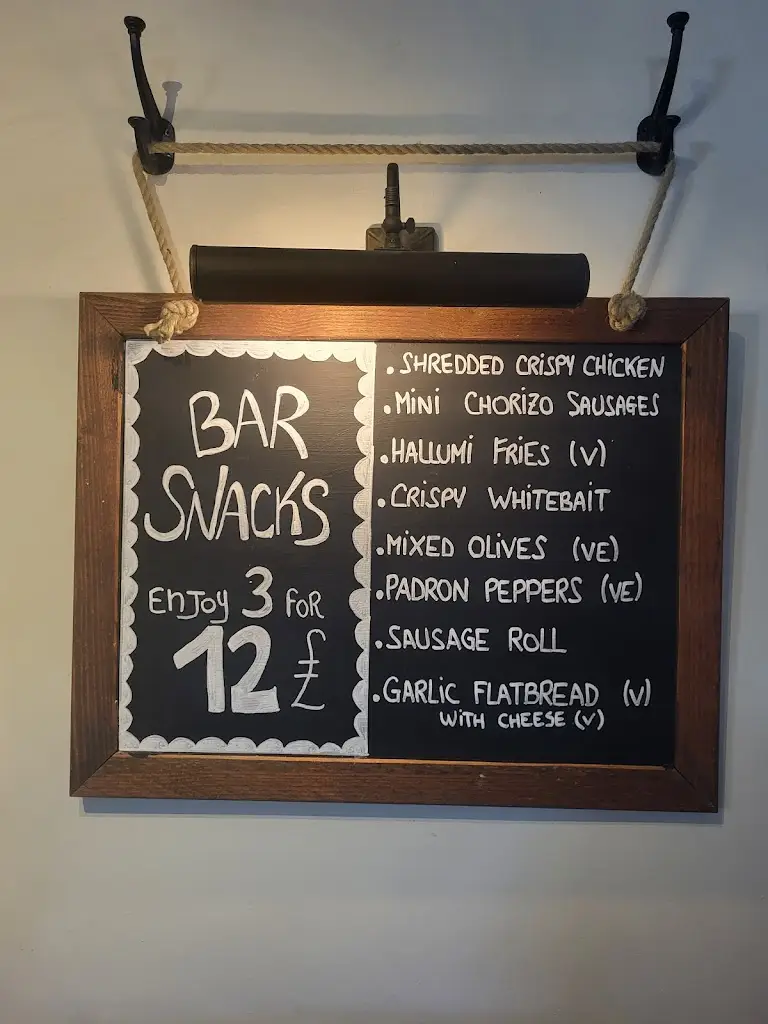 BAR
SNACKS
Enjoy 3 FOR
12 £
• SHREDDED CRISPY CHICKEN
• MINI CHORIZO SAUSAGES
• HALLUMI FRIES (V)
• CRISPY WHITEBAIT
• MIXED OLIVES (VE)
• PADRON PEPPERS (VE)
• SAUSAGE ROLL
• GARLIC FLATBREAD (V)
WITH CHEESE (V)